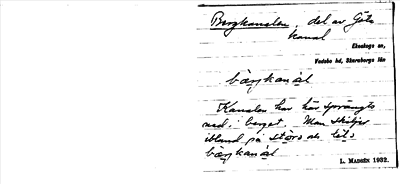 Bergkanalen, del av Göta
kanal
Ekebys sn,
Vadsbo hd, Skaraborgs län
bärgkanál
Kanalen har här sprängts
ned i berget. Man skiljer
ibland på störa
bärgkanál
L. MADSÉN 1932.